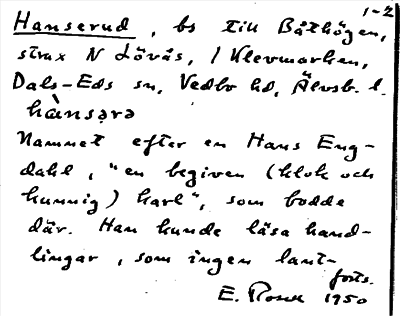 1-2
Hanserud, bs till Båthögen,
strax N Lövås, / Klevmarken,
Dals-Eds sn, Vedbo hd, Älvsb. l.
hànsərə
Namnet efter en Hans Eng-
dahl, "en begiven (klok och
kunnig) karl", som bodde
där. Han kunde läsa hand-
lingar, som ingen lant-
forts.
E. 1950